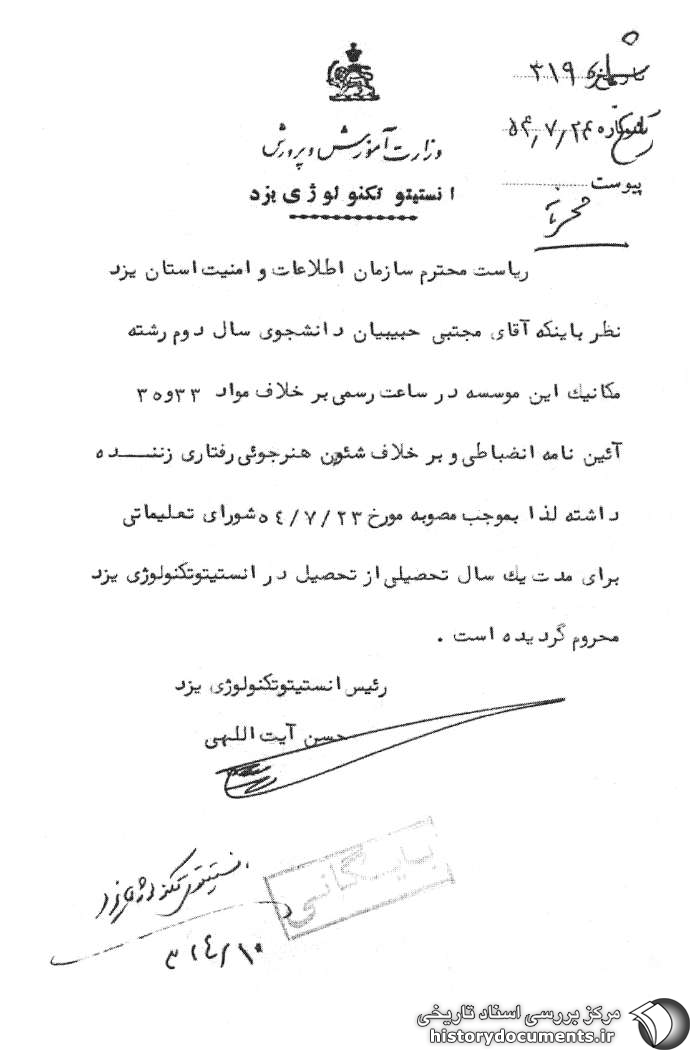 شماره ۳۱۹
تاریخ ۵۴/۷/۲۴
پیوست
محرمانه
وزارت آموزش و پرورش
انستیتو تکنولوژی یزد
ریاست محترم سازمان اطلاعات و امنیت استان یزد
نظر باینکه آقای مجتبی حبیبیان دانشجوی سال دوم رشته
مکانیك این موسسه در ساعت رسمی بر خلاف مواد ۳۳و۳۵
آئین نامه انضباطی و بر خلاف شئون هنرجوئی رفتاری زننـــده
داشته لذا بموجب مصوبه مورخ ۵٤/۷/۲۳ شورای تعلیماتی
برای مدت یك سال تحصیلی از تحصیل در انستیتوتکنولوژی یزد
محروم گردیده است .
رئیس انستیتوتکنولوژی یزد
حسن آیت اللهی
انستیتوی تکنولوژی
بایگانی
مرکز بررسی اسناد تاریخی
historydocuments.ir